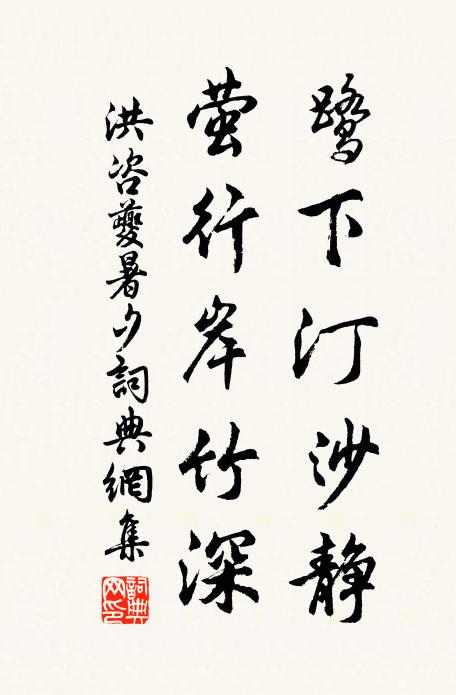 鹭下汀沙静
萤行岸竹深
洪咨夔暑夕詞典網集
詞典
网印